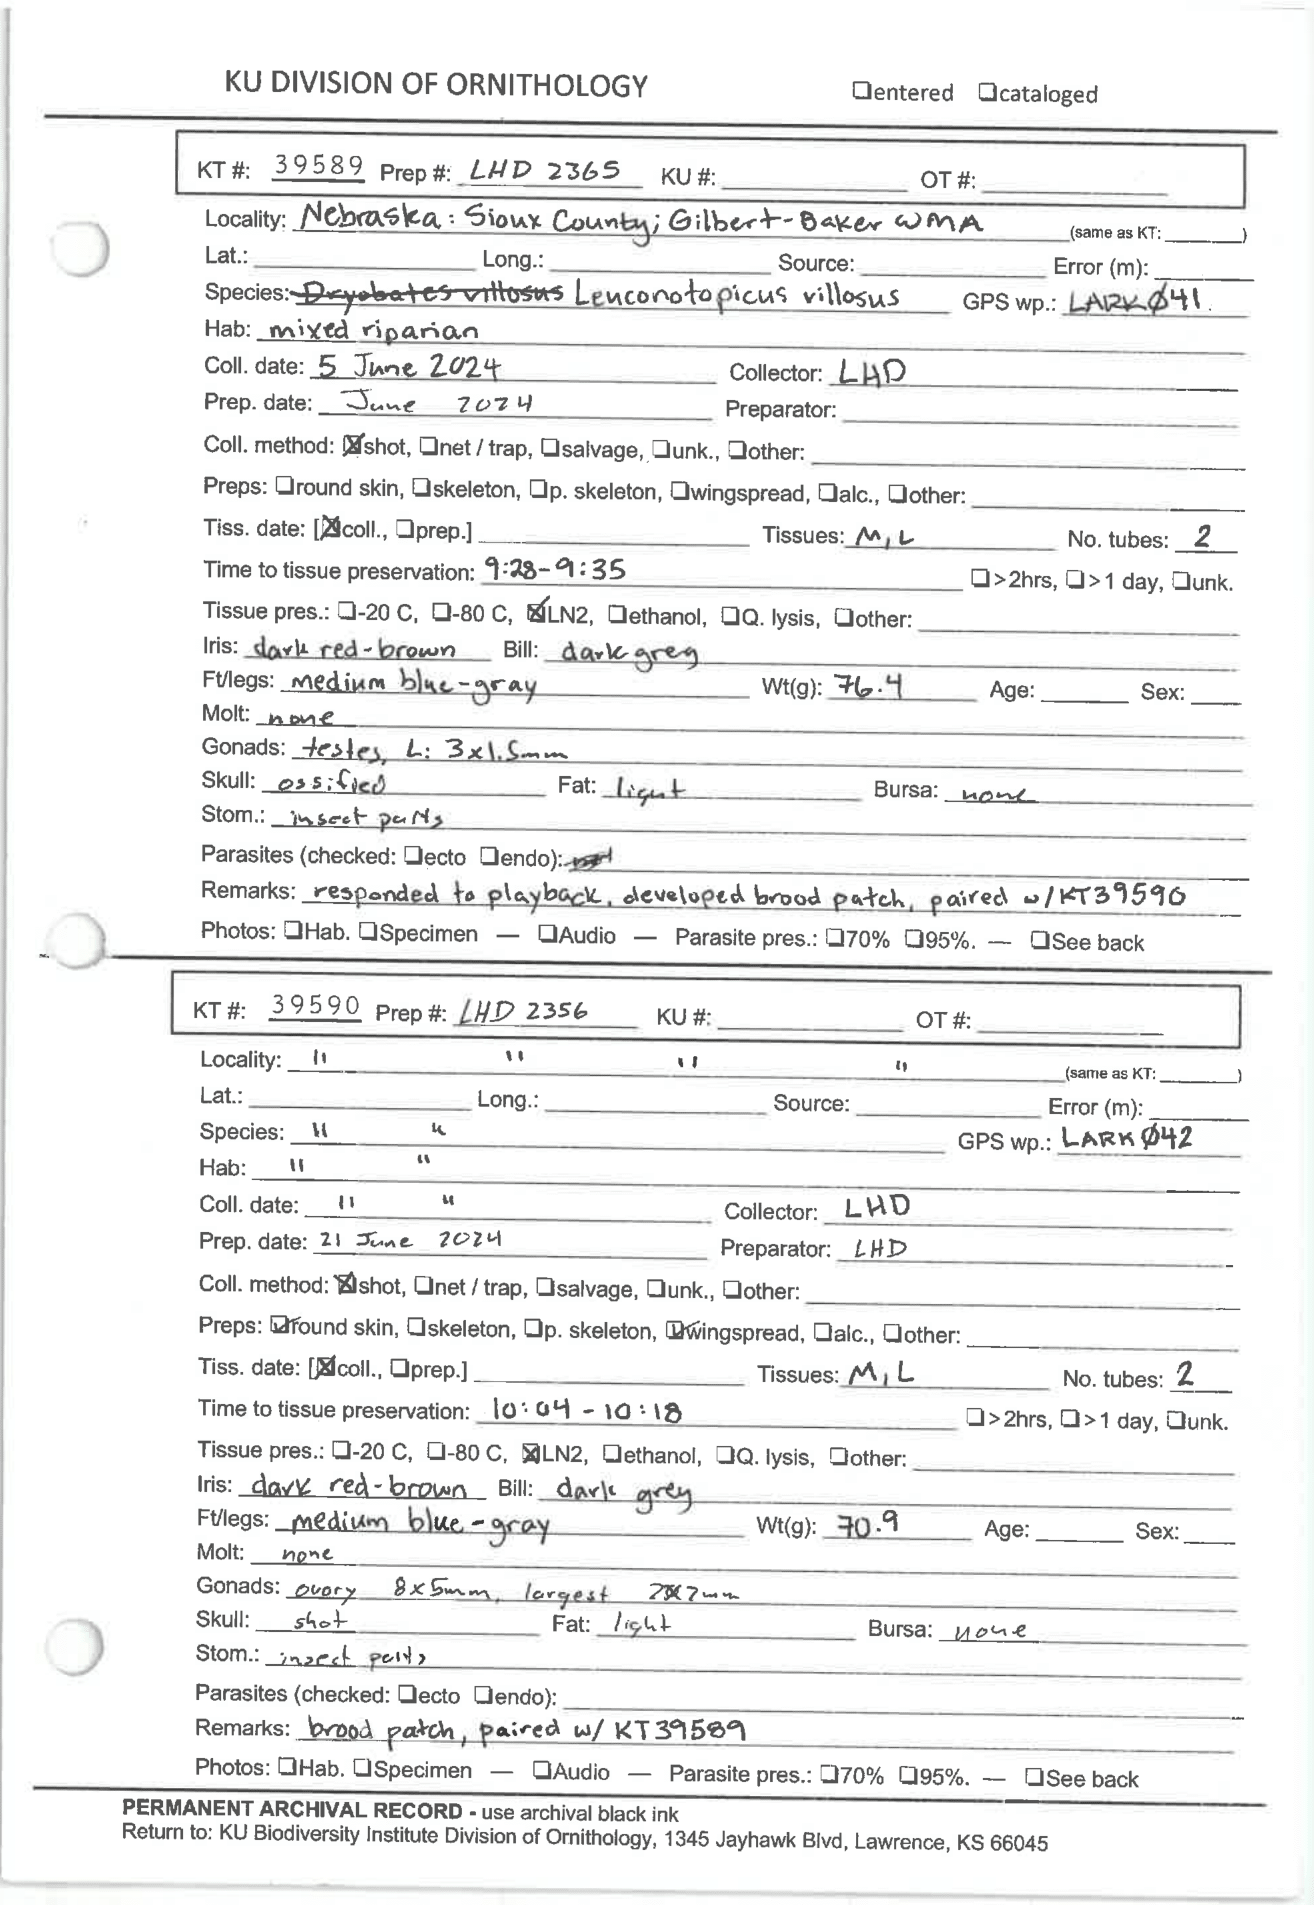 KU DIVISION OF ORNITHOLOGY ❏entered ❏cataloged
KT #: 39589 Prep #: LHD 2365 KU #: OT #:
Locality: Nebraska: Sioux County; Gilbert-Baker WMA (same as KT: )
Lat.: Long.: Source: Error (m):
Species: Dryobates villosus Leuconotopicus villosus GPS wp.: LARKØ41
Hab: mixed riparian
Coll. date: 5 June 2024 Collector: LHD
Prep. date: June 2024 Preparator:
Coll. method: ☒shot, ❏net / trap, ❏salvage, ❏unk., ❏other:
Preps: ❏round skin, ❏skeleton, ❏p. skeleton, ❏wingspread, ❏alc., ❏other:
Tiss. date: [☒coll., ❏prep.] Tissues: M, L No. tubes: 2
Time to tissue preservation: 9:28-9:35 ❏>2hrs, ❏>1 day, ❏unk.
Tissue pres.: ❏-20 C, ❏-80 C, ☒LN2, ❏ethanol, ❏Q. lysis, ❏other:
Iris: dark red-brown Bill: dark grey
Ft/legs: medium blue-gray Wt(g): 76.4 Age: Sex:
Molt: none
Gonads: testes, L: 3x1.5mm
Skull: ossified Fat: light Bursa: none
Stom.: insect parts
Parasites (checked: ❏ecto ❏endo):
Remarks: responded to playback, developed brood patch, paired w/KT39590
Photos: ❏Hab. ❏Specimen — ❏Audio — Parasite pres.: ❏70% ❏95%. — ❏See back
KT #: 39590 Prep #: LHD 2356 KU #: OT #:
Locality: " " " " (same as KT: )
Lat.: Long.: Source: Error (m):
Species: " " GPS wp.: LARKØ42
Hab: " "
Coll. date: " " Collector: LHD
Prep. date: 21 June 2024 Preparator: LHD
Coll. method: ☒shot, ❏net / trap, ❏salvage, ❏unk., ❏other:
Preps: ☑round skin, ❏skeleton, ❏p. skeleton, ☑wingspread, ❏alc., ❏other:
Tiss. date: [☒coll., ❏prep.] Tissues: M, L No. tubes: 2
Time to tissue preservation: 10:04-10:18 ❏>2hrs, ❏>1 day, ❏unk.
Tissue pres.: ❏-20 C, ❏-80 C, ☒LN2, ❏ethanol, ❏Q. lysis, ❏other:
Iris: dark red-brown Bill: dark grey
Ft/legs: medium blue-gray Wt(g): 70.9 Age: Sex:
Molt: none
Gonads: ovary 8x5mm, largest
Skull: shot Fat: light Bursa: none
Stom.: insect parts
Parasites (checked: ❏ecto ❏endo):
Remarks: brood patch, paired w/ KT39589
Photos: ❏Hab. ❏Specimen — ❏Audio — Parasite pres.: ❏70% ❏95%. — ❏See back
PERMANENT ARCHIVAL RECORD - use archival black ink
Return to: KU Biodiversity Institute Division of Ornithology, 1345 Jayhawk Blvd, Lawrence, KS 66045